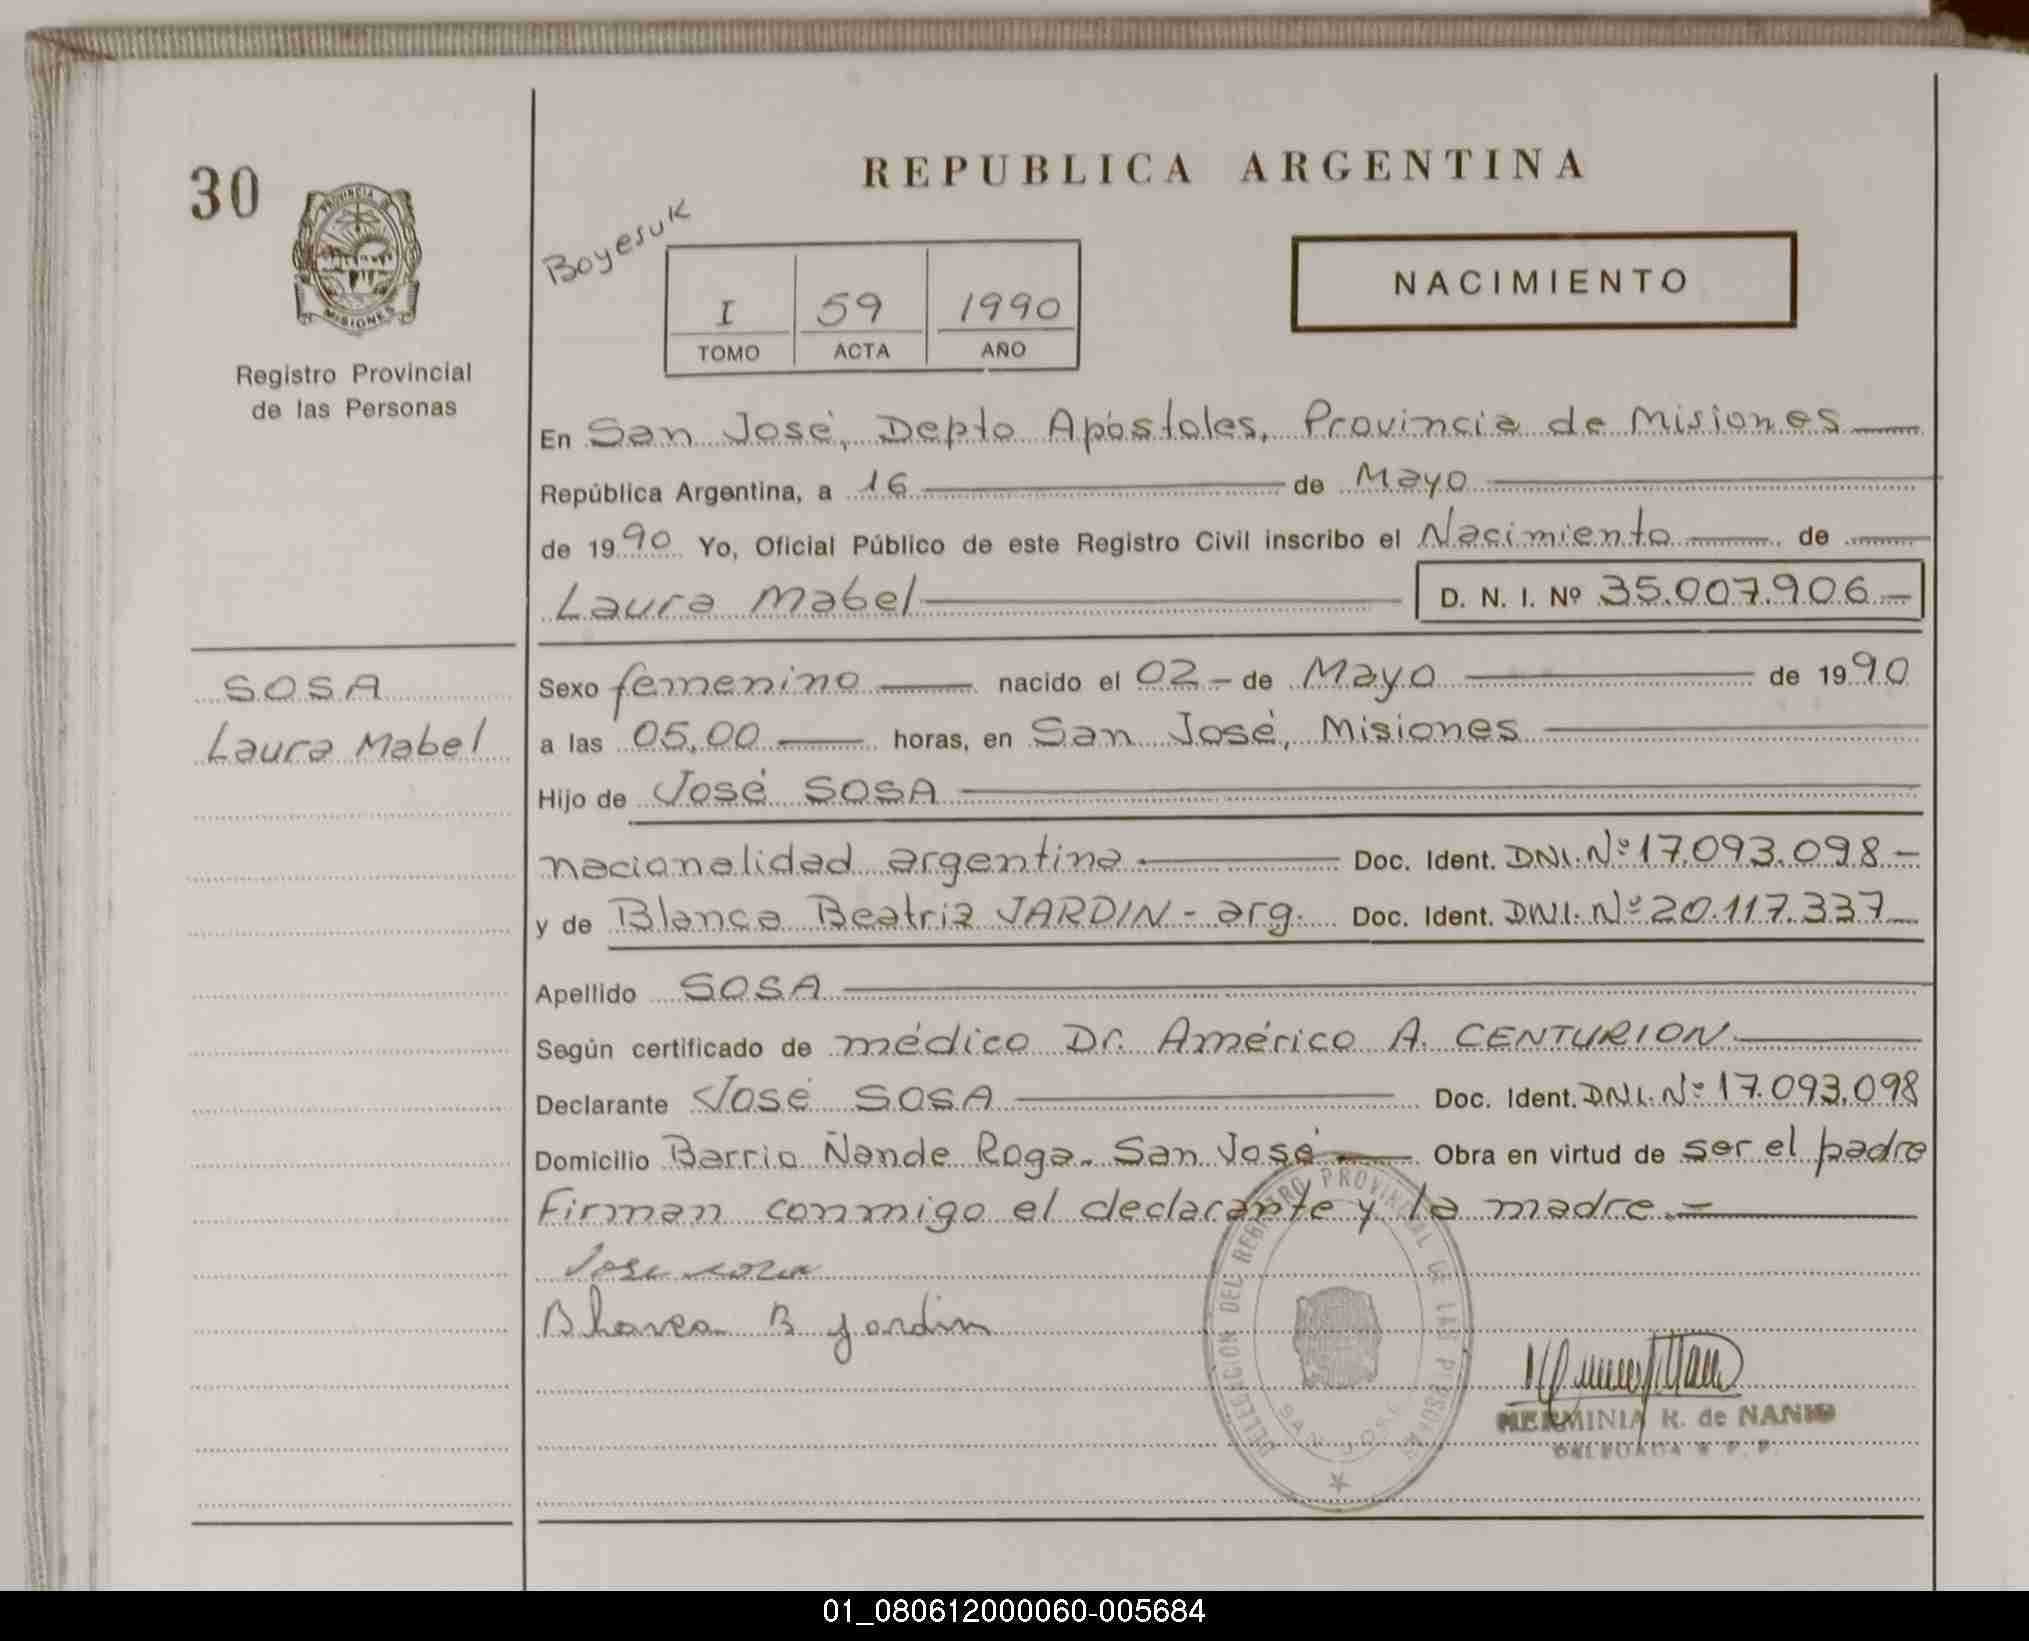 30
PROVINCIA DE
MISIONES
Registro Provincial
de las Personas
SOSA
Laura Mabel
REPUBLICA ARGENTINA
Boyesuk
I 59 1990
TOMO ACTA AÑO
NACIMIENTO
En San José, Depto Apóstoles, Provincia de Misiones
República Argentina, a 16 de Mayo
de 1990 Yo, Oficial Público de este Registro Civil inscribo el Nacimiento de
Laura Mabel D. N. I. Nº 35.007.906
Sexo femenino nacido el 02 - de Mayo de 1990
a las 05,00 horas, en San José, Misiones
Hijo de José SOSA
nacionalidad argentina Doc. Ident. DNI. Nº 17.093.098 -
y de Blanca Beatriz JARDIN - arg. Doc. Ident. DNI. Nº 20.117.337
Apellido SOSA
Según certificado de médico Dr. Américo A. CENTURION
Declarante José SOSA Doc. Ident. DNI. Nº 17.093.098
Domicilio Barrio Ñande Roga. San José Obra en virtud de ser el padre
Firman conmigo el declarante y la madre.-
Jose sosa
Blanca B jardin
DELEGACION DEL REGISTRO PROVINCIAL DE LAS PERSONAS
SAN JOSE
HERMINIA R. de NANIO
DELEGADA R. P. P.
01_080612000060-005684